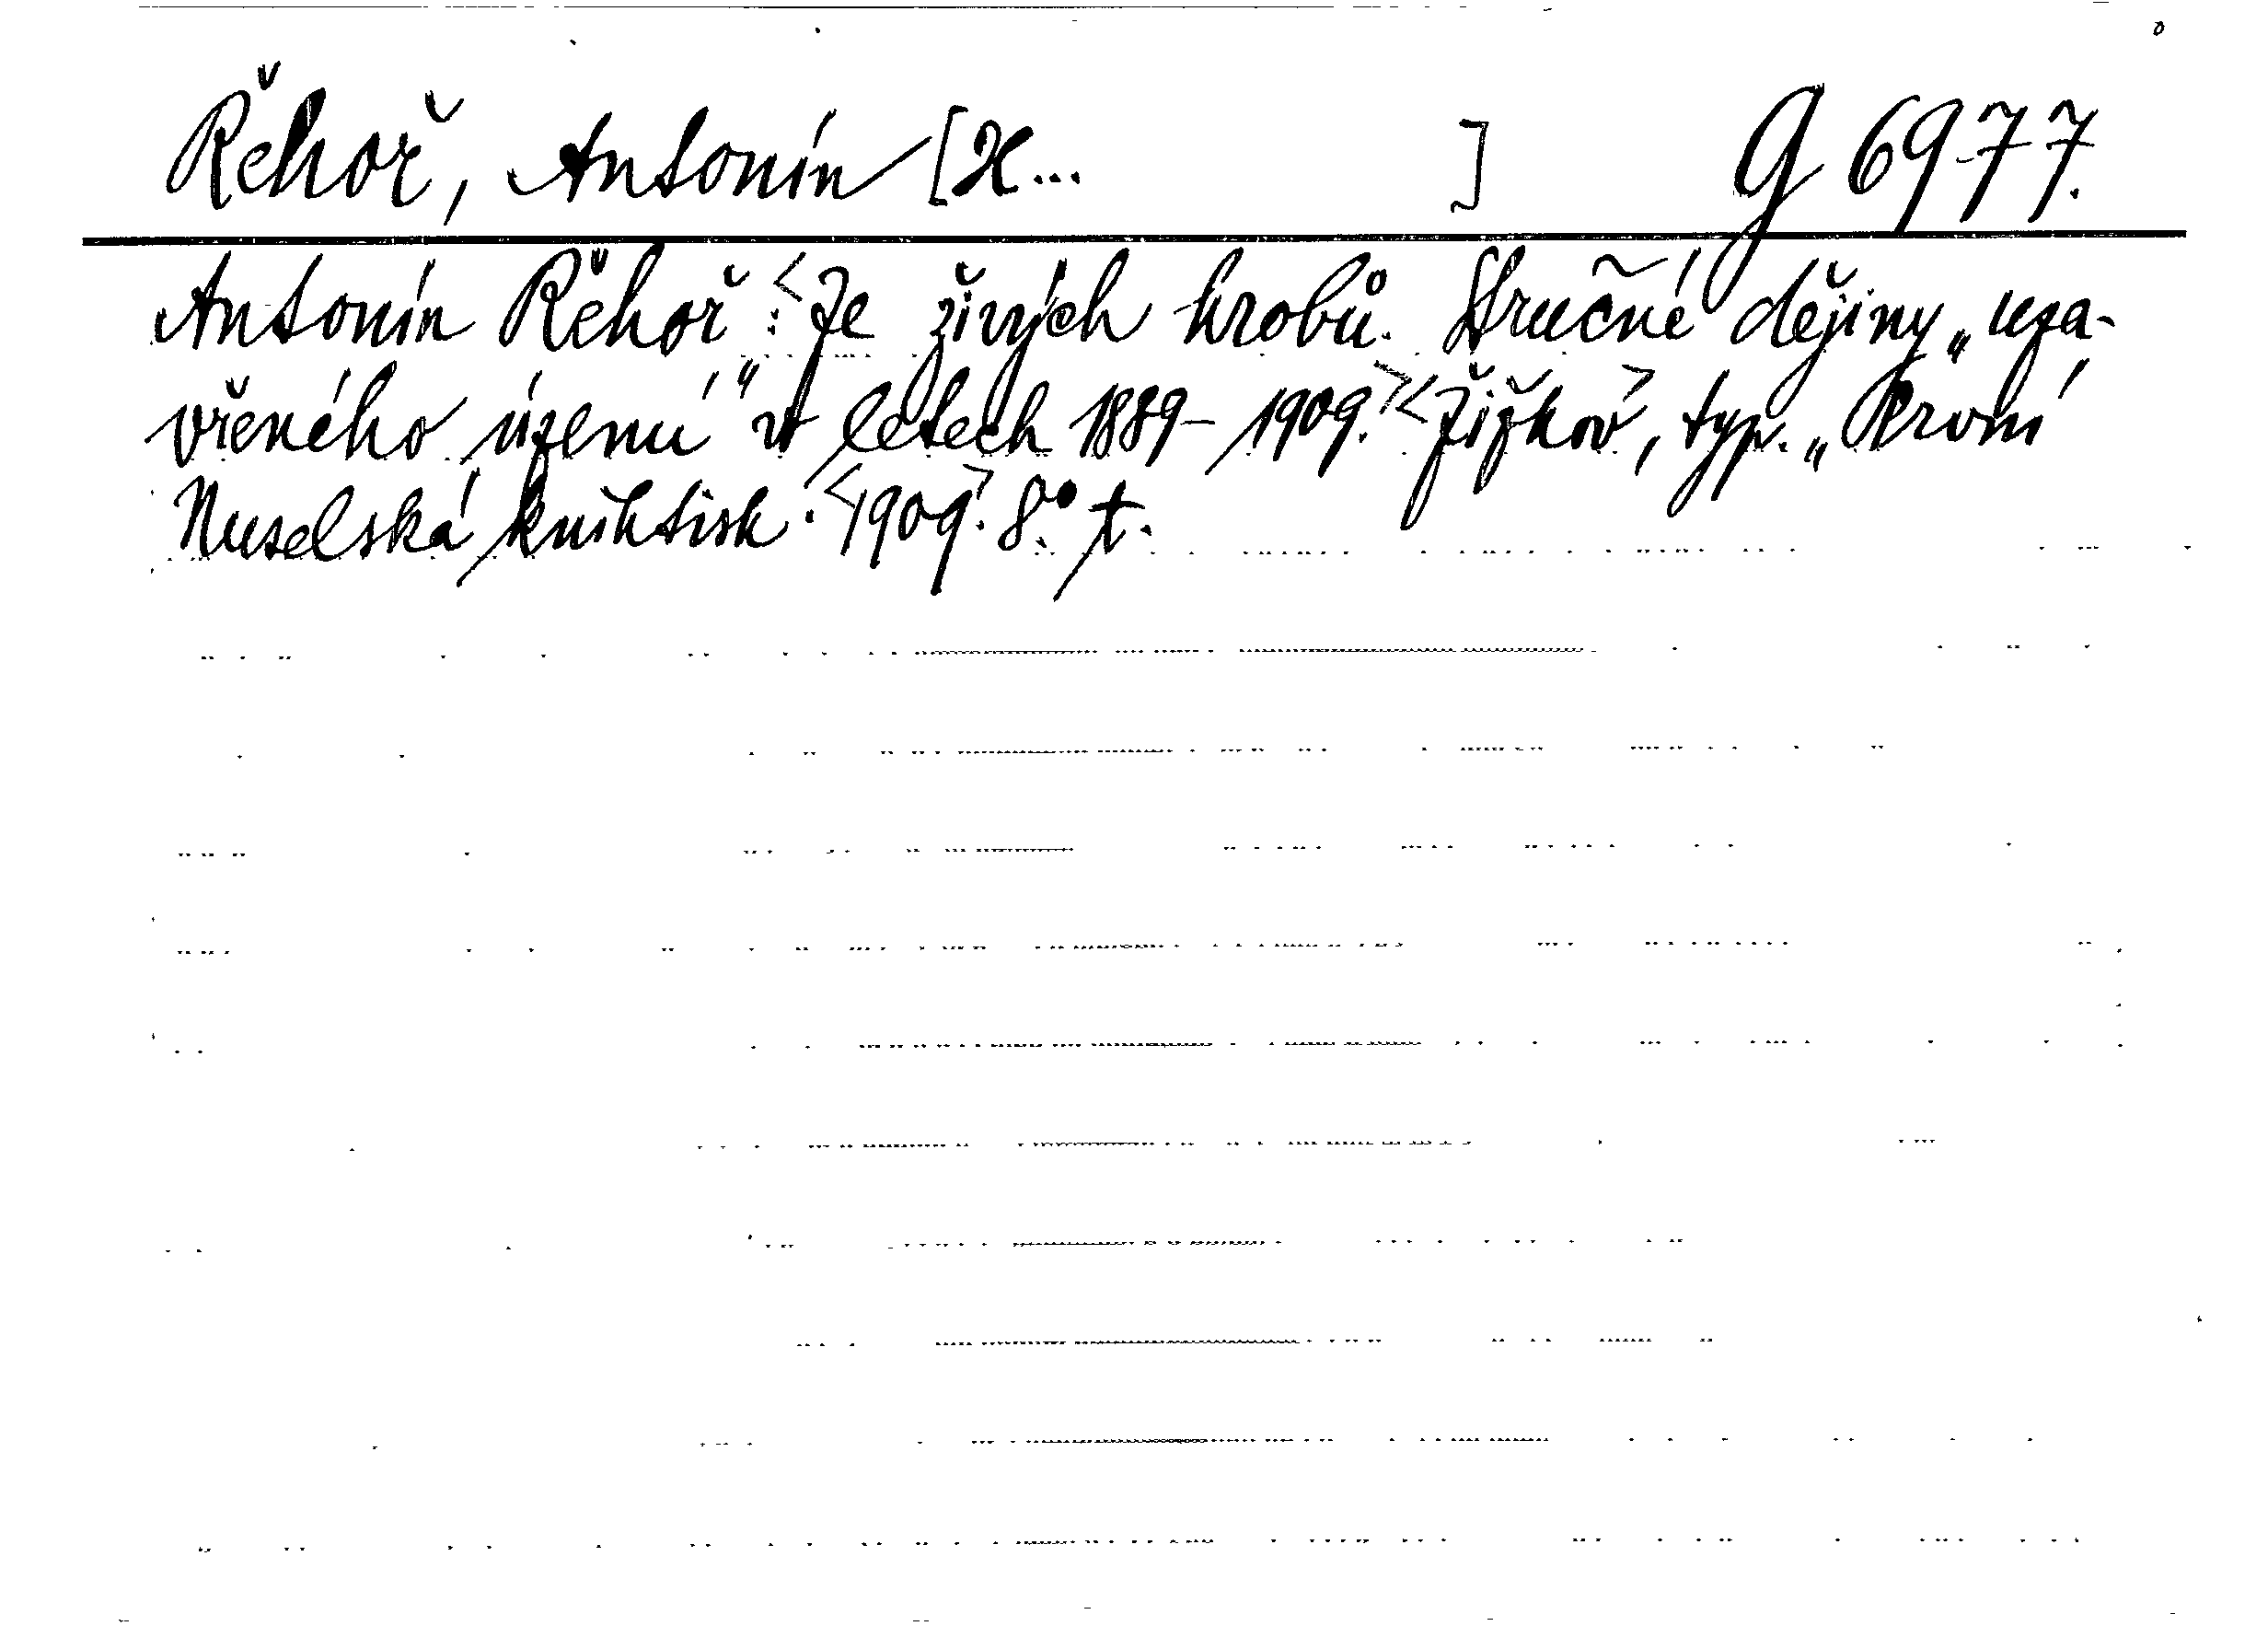 Řehoř, Antonín [X... ] G 6977.
Antonín Řehoř : <Ze živých hrobů. Stručné dějiny „uza-
vřeného území" v letech 1889–1909.> <Žižkov>, typ. „První
Nuselská knihtisk.“ <1909>. 8° t.